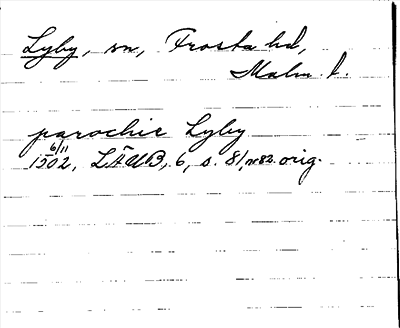 Lyby, sn, Frosta hd,
Malm. l.
parochie Lyby
6/11
1502, LÄUB, 6, s. 81, nr 82. orig.